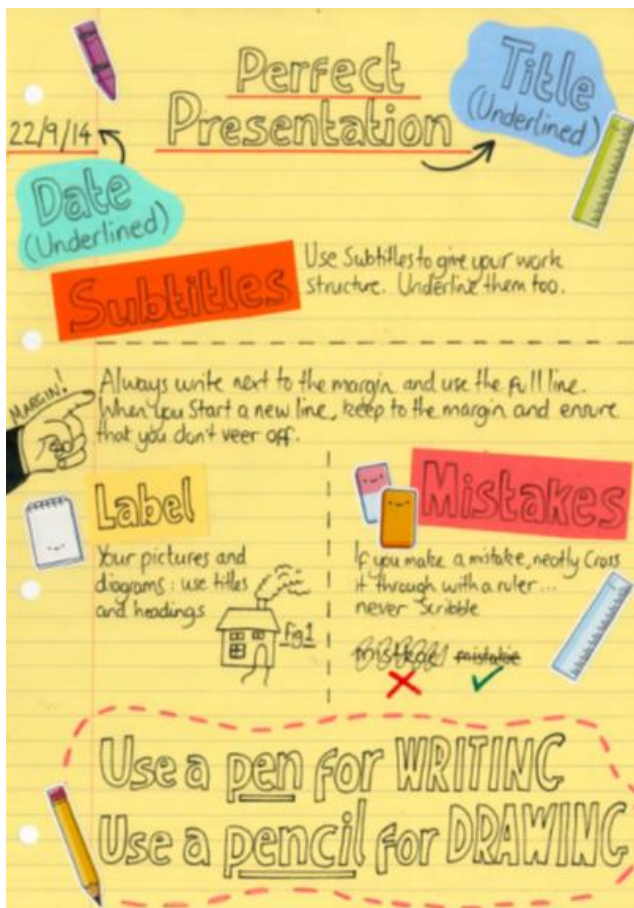 Perfect
Presentation
Title
(Underlined)
22/9/14
Date
(Underlined)
Subtitles
Use Subtitles to give your work
structure. Underline them too.
MARGIN!
Always write next to the margin and use the full line.
When you start a new line, keep to the margin and ensure
that you don't veer off.
Label
Your pictures and
diagrams: use titles
and headings
Fig 1
Mistakes
If you make a mistake, neatly Cross
it through with a ruler...
never Scribble
mistake
Use a pen for WRITING
Use a pencil for DRAWING